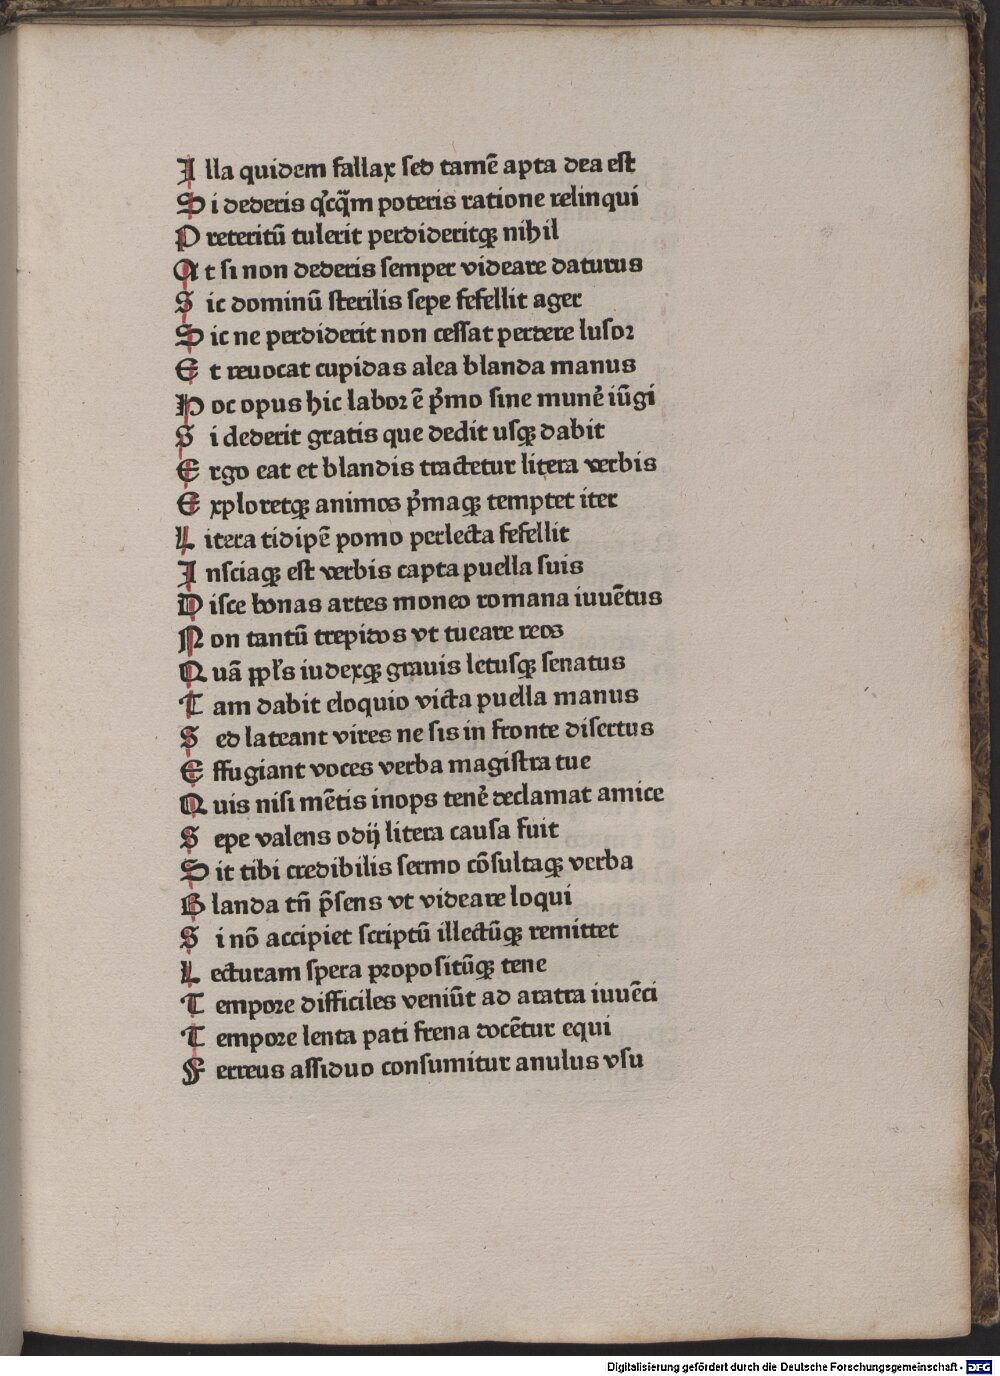 Illa quidem fallax sed tamē apta dea est
Si dederis q̇cq̄m poteris ratione relinqui
Preteritū tulerit perdideritqꝫ nihil
At si non dederis semper videare daturus
Sic dominū sterilis sepe fefellit ager
Sic ne perdiderit non cessat perdere lusor
Et reuocat cupidas alea blanda manus
Hoc opus hic labor ē p̓mo sine mune᷒ iūgi
Si dederit gratis que dedit usqꝫ dabit
Ergo eat et blandis tractetur litera verbis
Exploretqꝫ animos p̓maqꝫ temptet iter
Litera tidipē pomo perlecta fefellit
Insciaqꝫ est verbis capta puella suis
Disce bonas artes moneo romana iuuētus
Non tantū trepidos vt tueare reos
Quā ꝓpl's iudexqꝫ grauis letusqꝫ senatus
Tam dabit eloquio victa puella manus
Sed lateant vires ne sis in fronte disertus
Effugiant voces verba magistra tue
Quis nisi mētis inops tene᷒ declamat amice
Sepe valens odij litera causa fuit
Sit tibi credibilis sermo cōsultaqꝫ verba
Blanda tn̄ p̄sens vt videare loqui
Si nō accipiet scriptū illectūqꝫ remittet
Lecturam spera propositūqꝫ tene
Tempore difficiles veniūt ad aratra iuuēci
Tempore lenta pati frena docētur equi
Ferreus assiduo consumitur anulus vsu
Digitalisierung gefördert durch die Deutsche Forschungsgemeinschaft - DFG